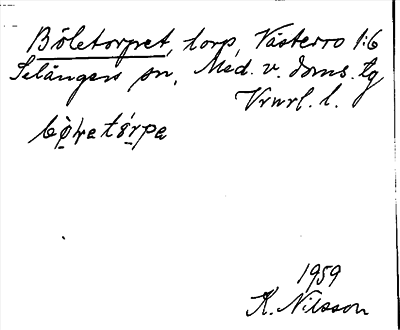 Böletorpet, torp, Västerro 1:6
Selångers sn, Med. v. doms. tg
Vrnrl. l.
1959
K. Nilsson